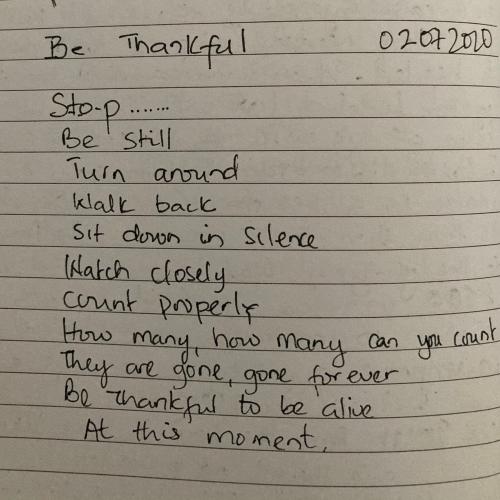 Be Thankful 02072020
Sto-p .......
Be still
Turn around
Walk back
Sit down in silence
Watch closely
Count properly
How many, how many can you count
They are gone, gone for ever
Be thankful to be alive
At this moment.